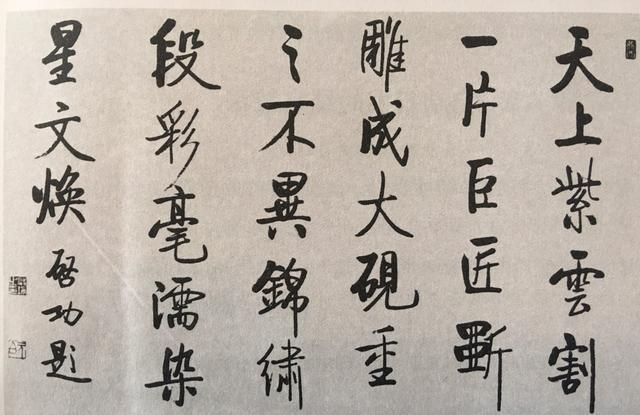 天上紫雲割
一片巨匠斲
雕成大硯重
之不異錦繡
段彩毫濡染
星文煥啓功題